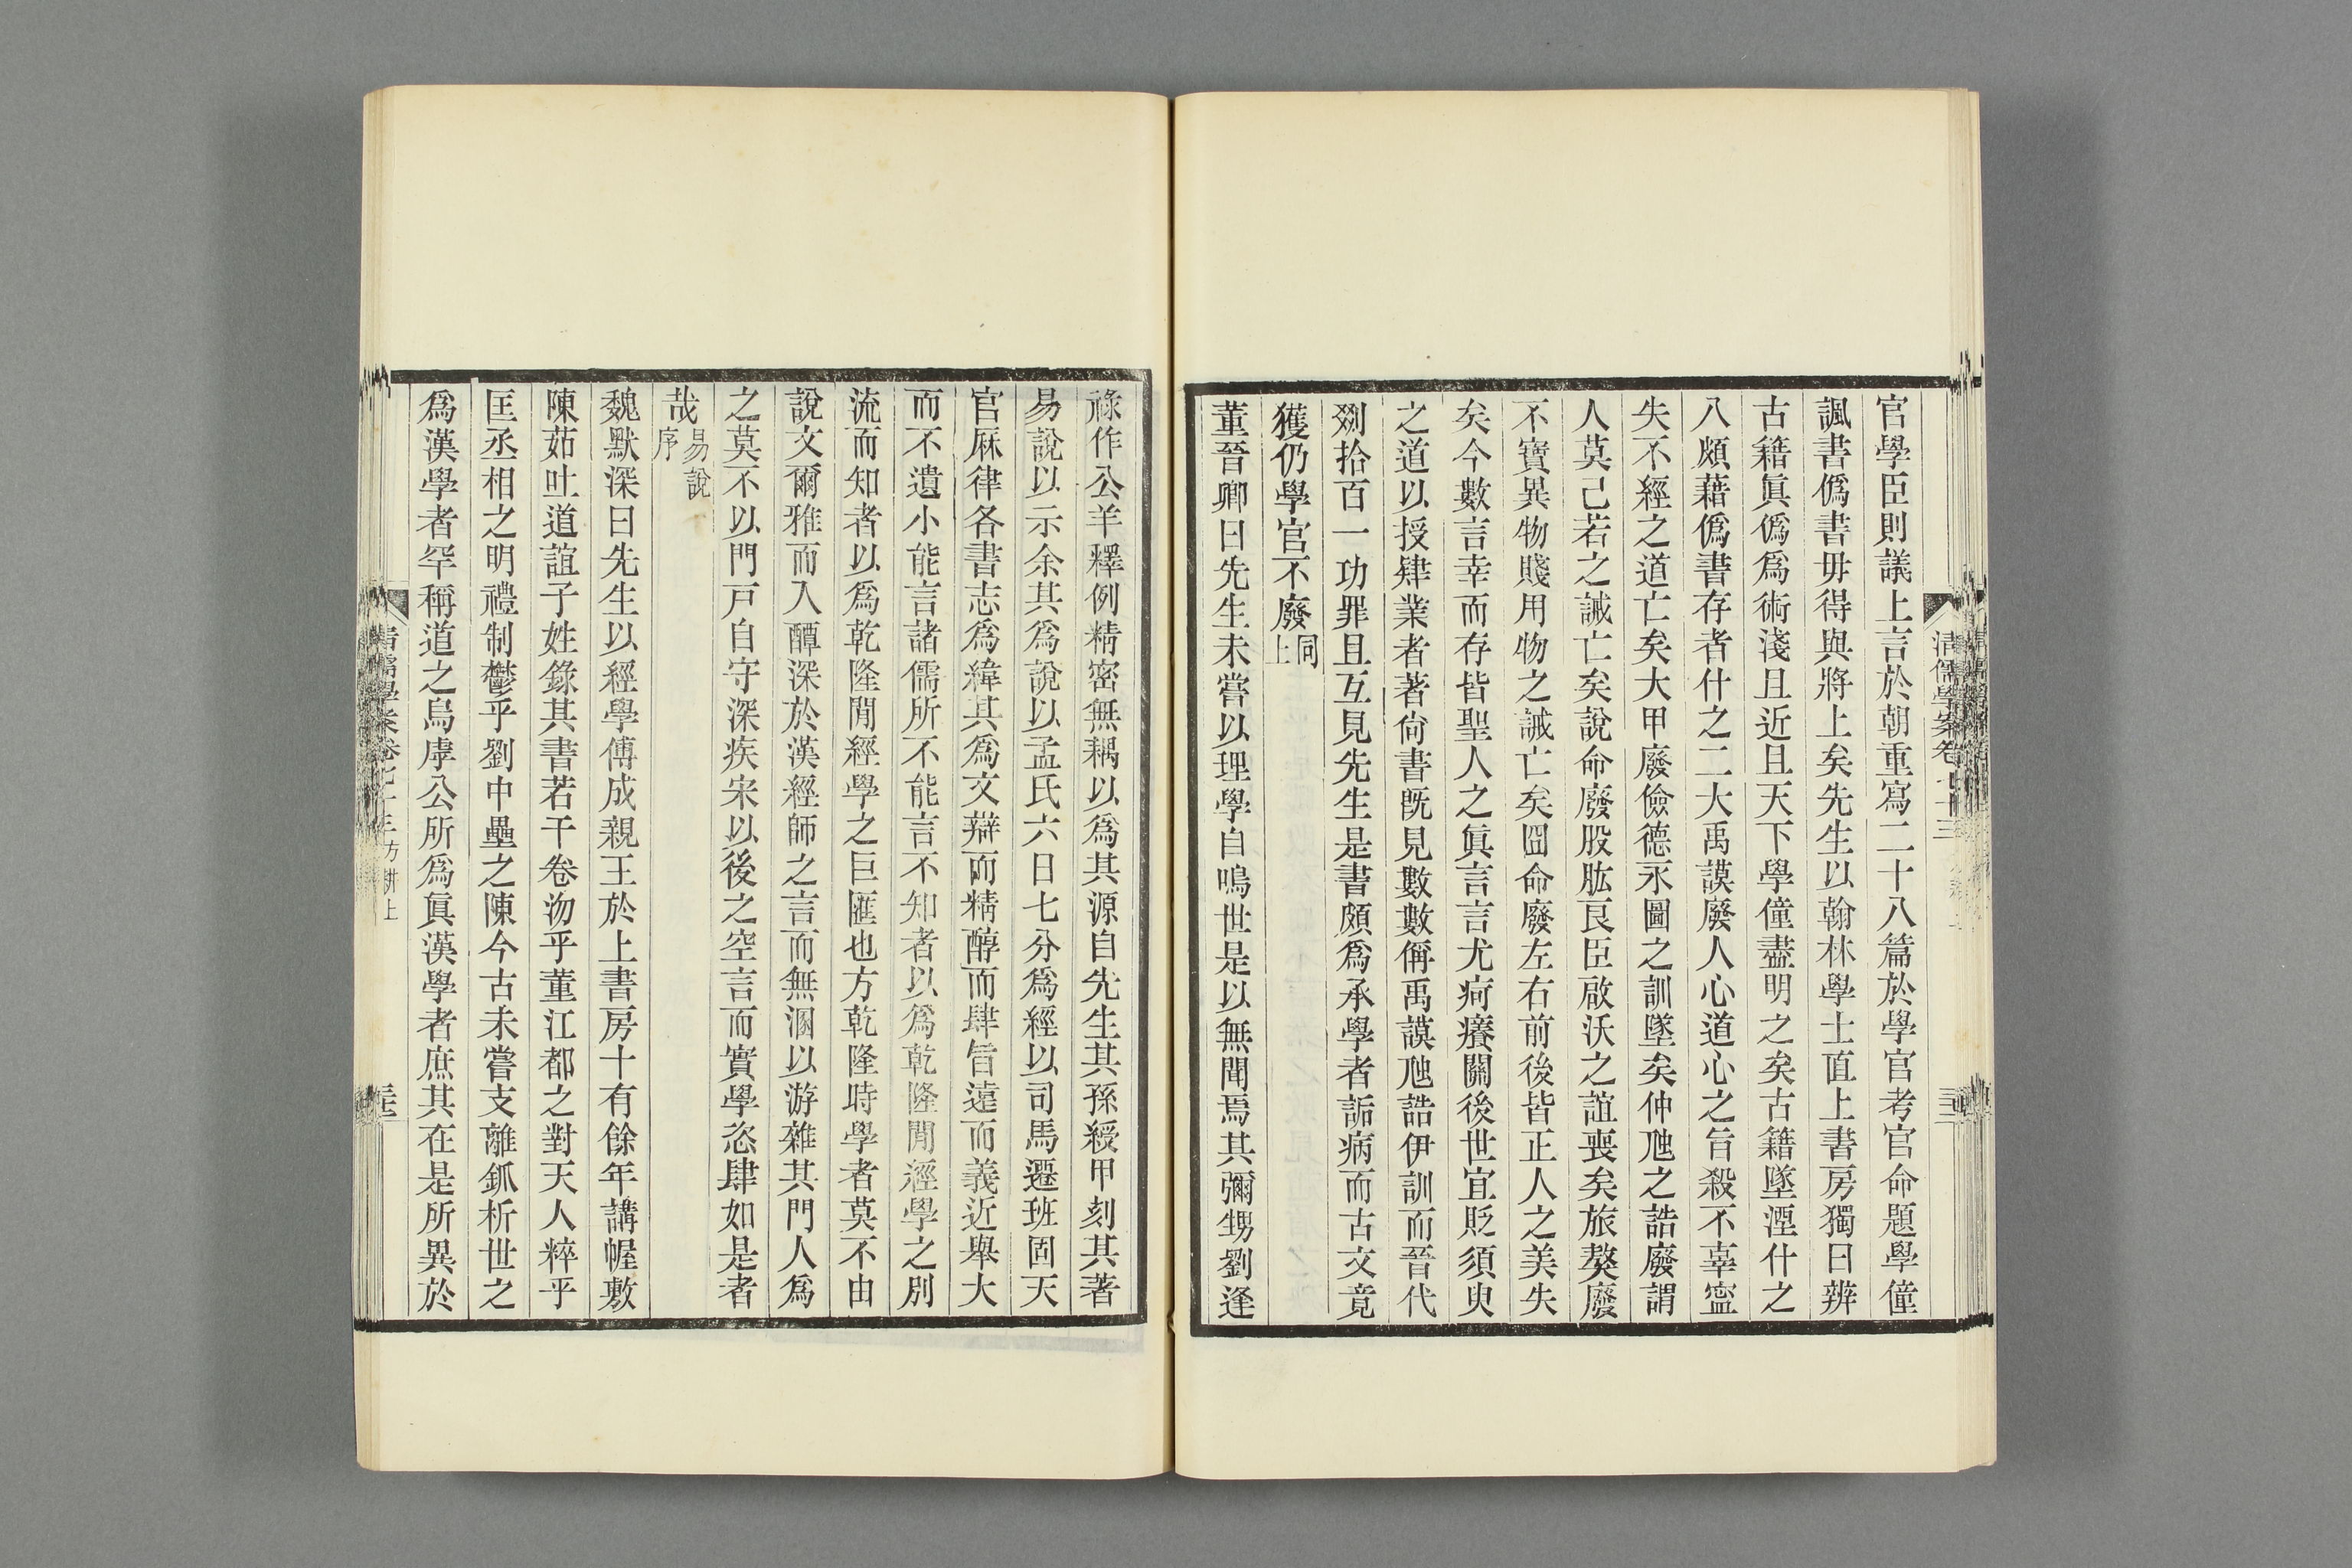 官學臣則議上言於朝重寫二十八篇於學官考官命題學僮
諷書僞書毋得與將上矣先生以翰林學士直上書房獨曰辨
古籍眞僞爲術淺且近且天下學僮盡明之矣古籍墜湮什之
八頗藉僞書存者什之二大禹謨廢人心道心之旨殺不辜寍
失不經之道亡矣大甲廢儉德永圖之訓墜矣仲虺之誥廢謂
人莫己若之誡亡矣說命廢股肱良臣啟沃之誼喪矣旅獒廢
不寶異物賤用物之誡亡矣冏命廢左右前後皆正人之美失
矣今數言幸而存皆聖人之眞言言尤疴癢關後世宜貶須臾
之道以授肄業者著尙書旣見數數偁禹謨虺誥伊訓而晉代
剟拾百一功罪且互見先生是書頗爲承學者詬病而古文竟
獲仍學官不廢 同上
董晉卿曰先生未嘗以理學自鳴世是以無聞焉其彌甥劉逢
祿作公羊釋例精密無耦以爲其源自先生其孫綬甲刻其著
易說以示余其爲說以孟氏六日七分爲經以司馬遷班固天
官厤律各書志爲緯其爲文辯而精醇而肆旨遠而義近舉大
而不遺小能言諸儒所不能言不知者以爲乾隆閒經學之別
流而知者以爲乾隆閒經學之巨匯也方乾隆時學者莫不由
說文爾雅而入醰深於漢經師之言而無溷以游雜其門人爲
之莫不以門戸自守深疾宋以後之空言而實學恣肆如是者
哉 易說序
魏默深曰先生以經學傅成親王於上書房十有餘年講幄敷
陳茹吐道誼子姓錄其書若干卷沕乎董江都之對天人粹乎
匡丞相之明禮制鬱乎劉中壘之陳今古未嘗支離釽析世之
爲漢學者罕稱道之烏虖公所爲眞漢學者庶其在是所異於
清儒學案卷七十三
清儒學案卷七十三 方耕上